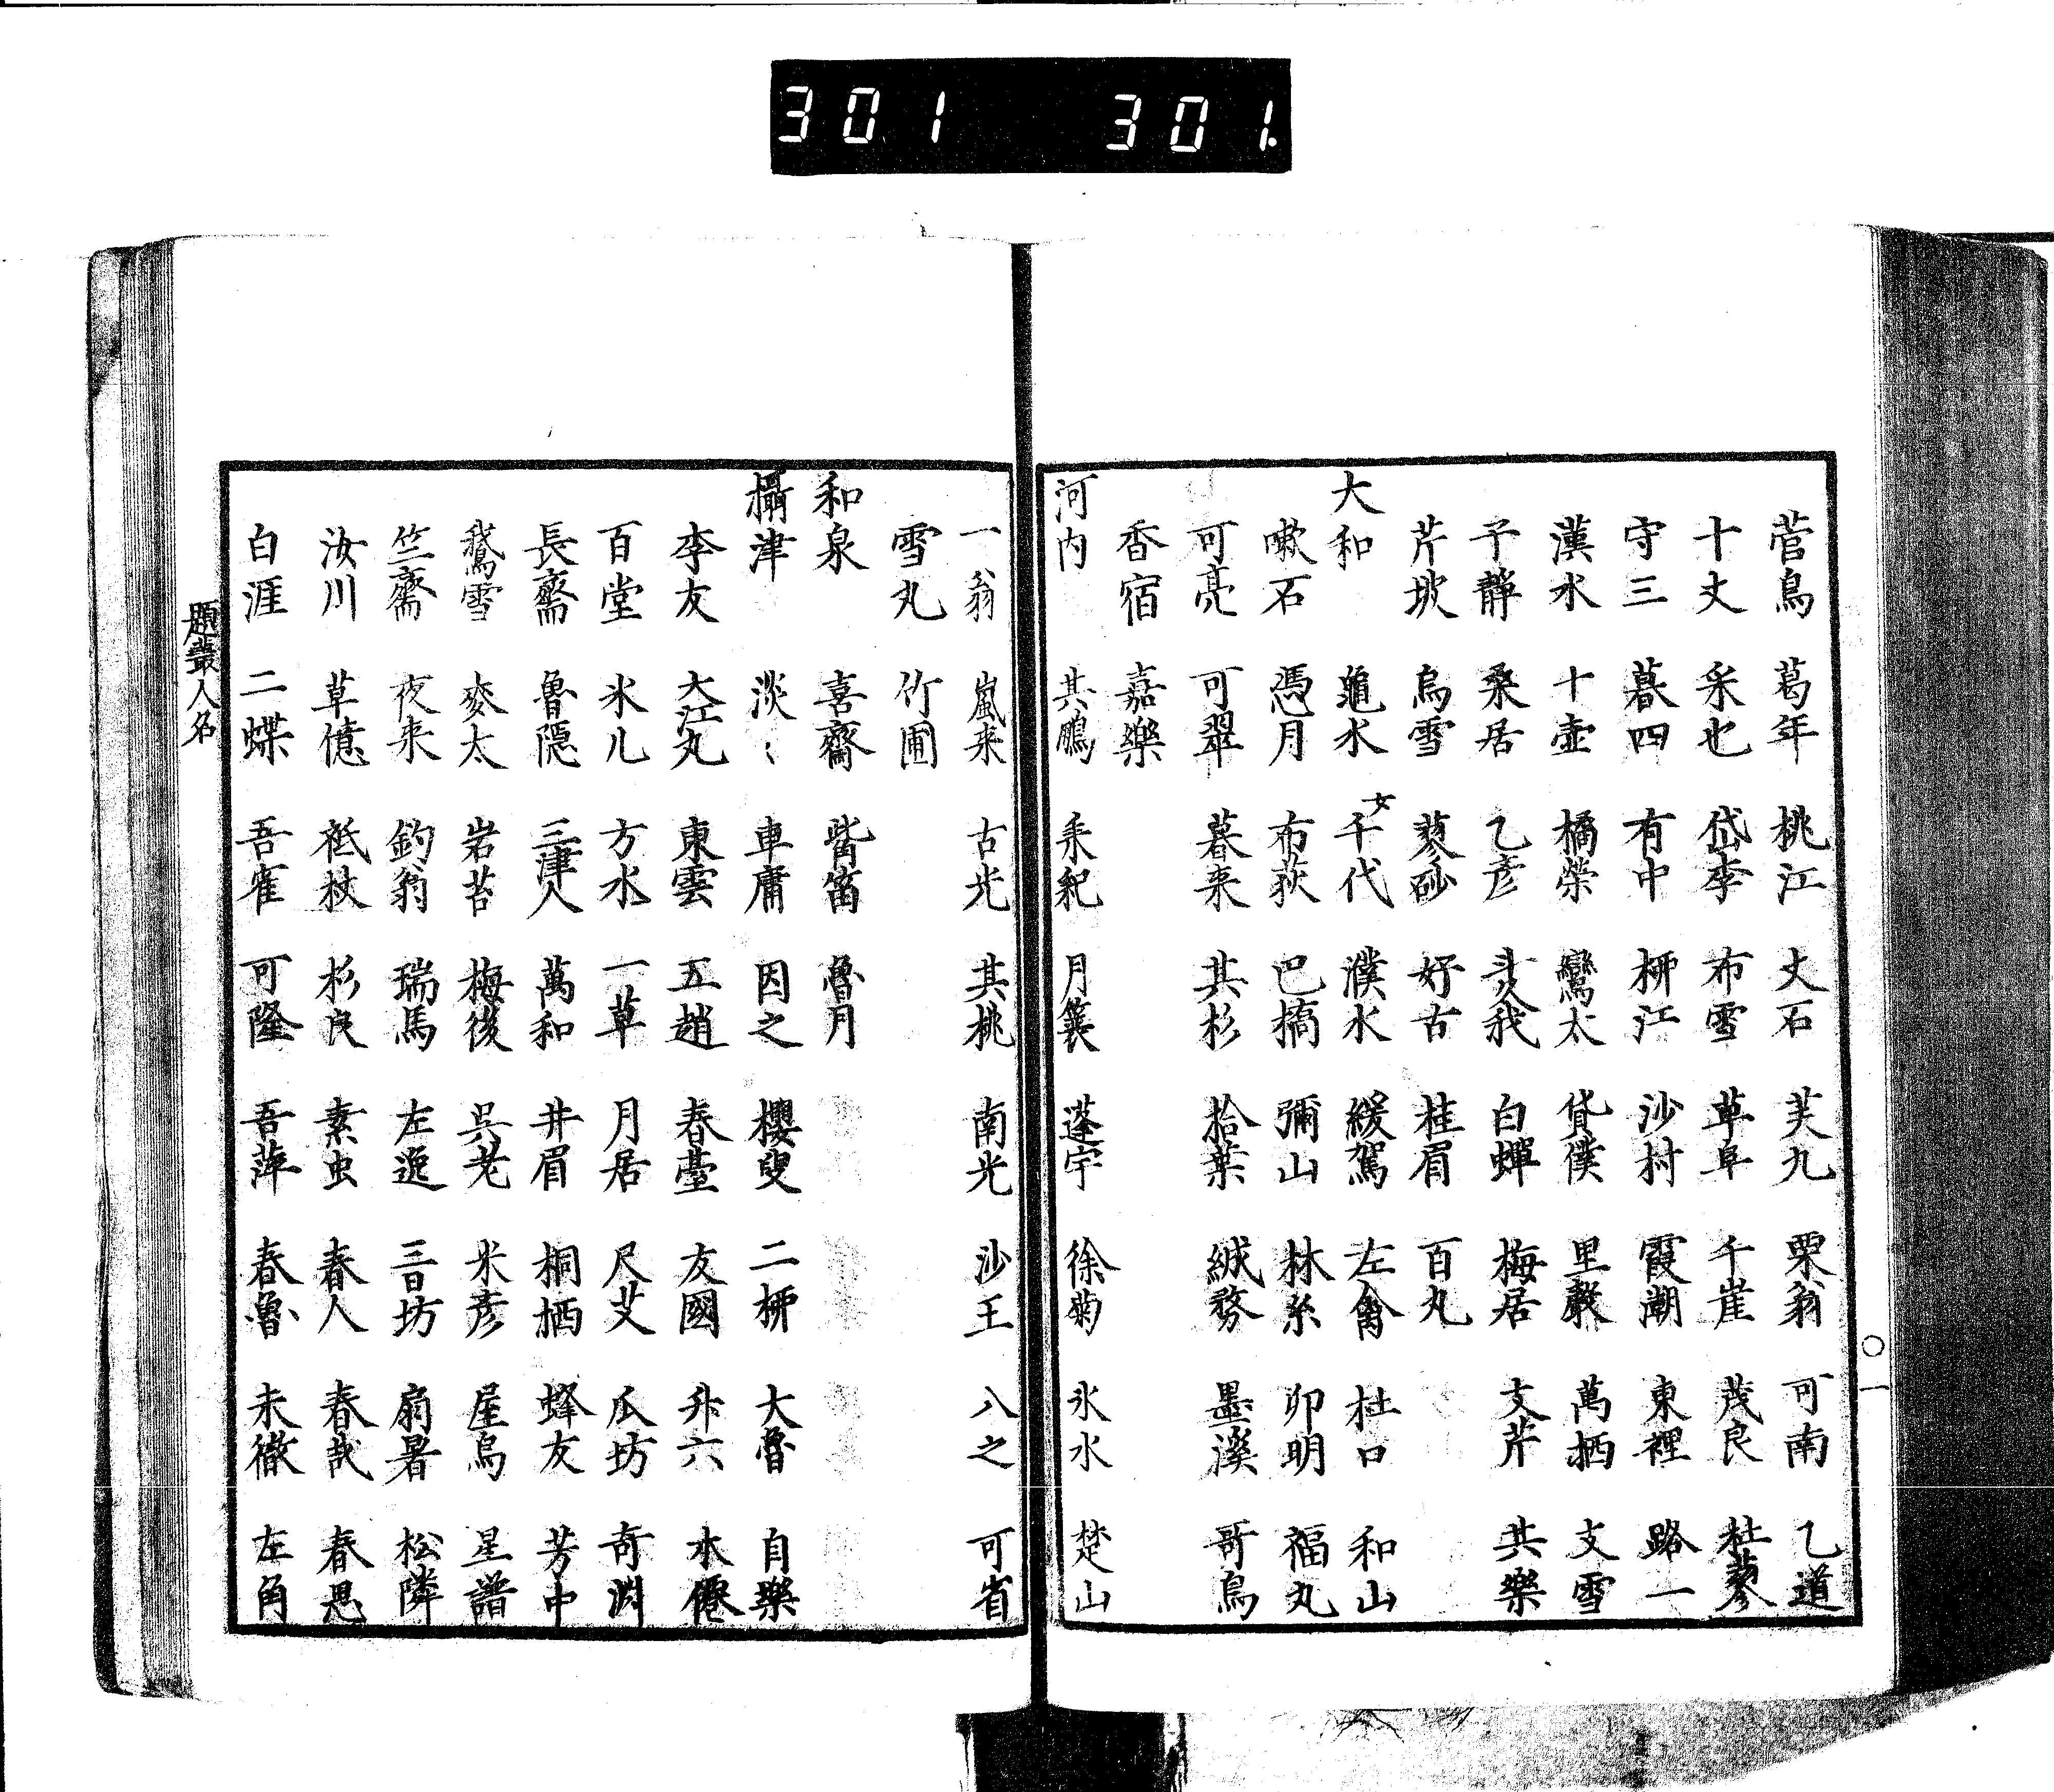 301 301.
菅鳥 葛年 桃江 丈石 芙九 栗翁 可南 乙道
十丈 采也 岱李 布雪 草阜 千崖 茂良 杜蓼
守三 暮四 有中 柳江 沙村 霞潮 東裡 路一
漢水 十壺 橘榮 鸞太 貸僕 里壑 萬栖 支雪
予靜 桑居 乙彦 我 白蟬 梅居 支芹 共樂
芹坡 烏雪 蓼砂 好古 桂眉 百丸
大和 龜水 女千代 濮水 緩駕 左禽 杜口 和山
嗽石 馮月 布荻 巴摘 彌山 林糸 卯明 福丸
可亮 可翠 暮来 其杉 拾葉 絨 墨溪 哥鳥
香宿 嘉樂
河内 其鵬 来紀 月簑 蓬宇 徐菊 氷水 楚山
〇一
一翁 嵐来 古光 其桃 南光 沙王 八之 可省
雪丸 竹圃
和泉 喜齋 觜笛 魯月
攝津 淡〻 車庸 因之 櫻叟 二柳 大魯 自樂
李友 大江丸 東雲 五趙 春臺 友國 升六 木僊
百堂 氷儿 方水 一草 月居 尺艾 瓜坊 奇淵
長齋 魯隠 三津人 萬和 井眉 桐栖 蜂友 芳中
鵞雪 麥太 岩苔 梅後 呉老 米彦 屋烏 星譜
竺齋 夜来 釣翁 瑞馬 左逸 三日坊 扇暑 松隣
汝川 草億 祗杖 杉良 素虫 春人 春哉 春恩
白涯 二蝶 吾雀 可隆 吾萍 春魯 未徹 左角
題叢人名